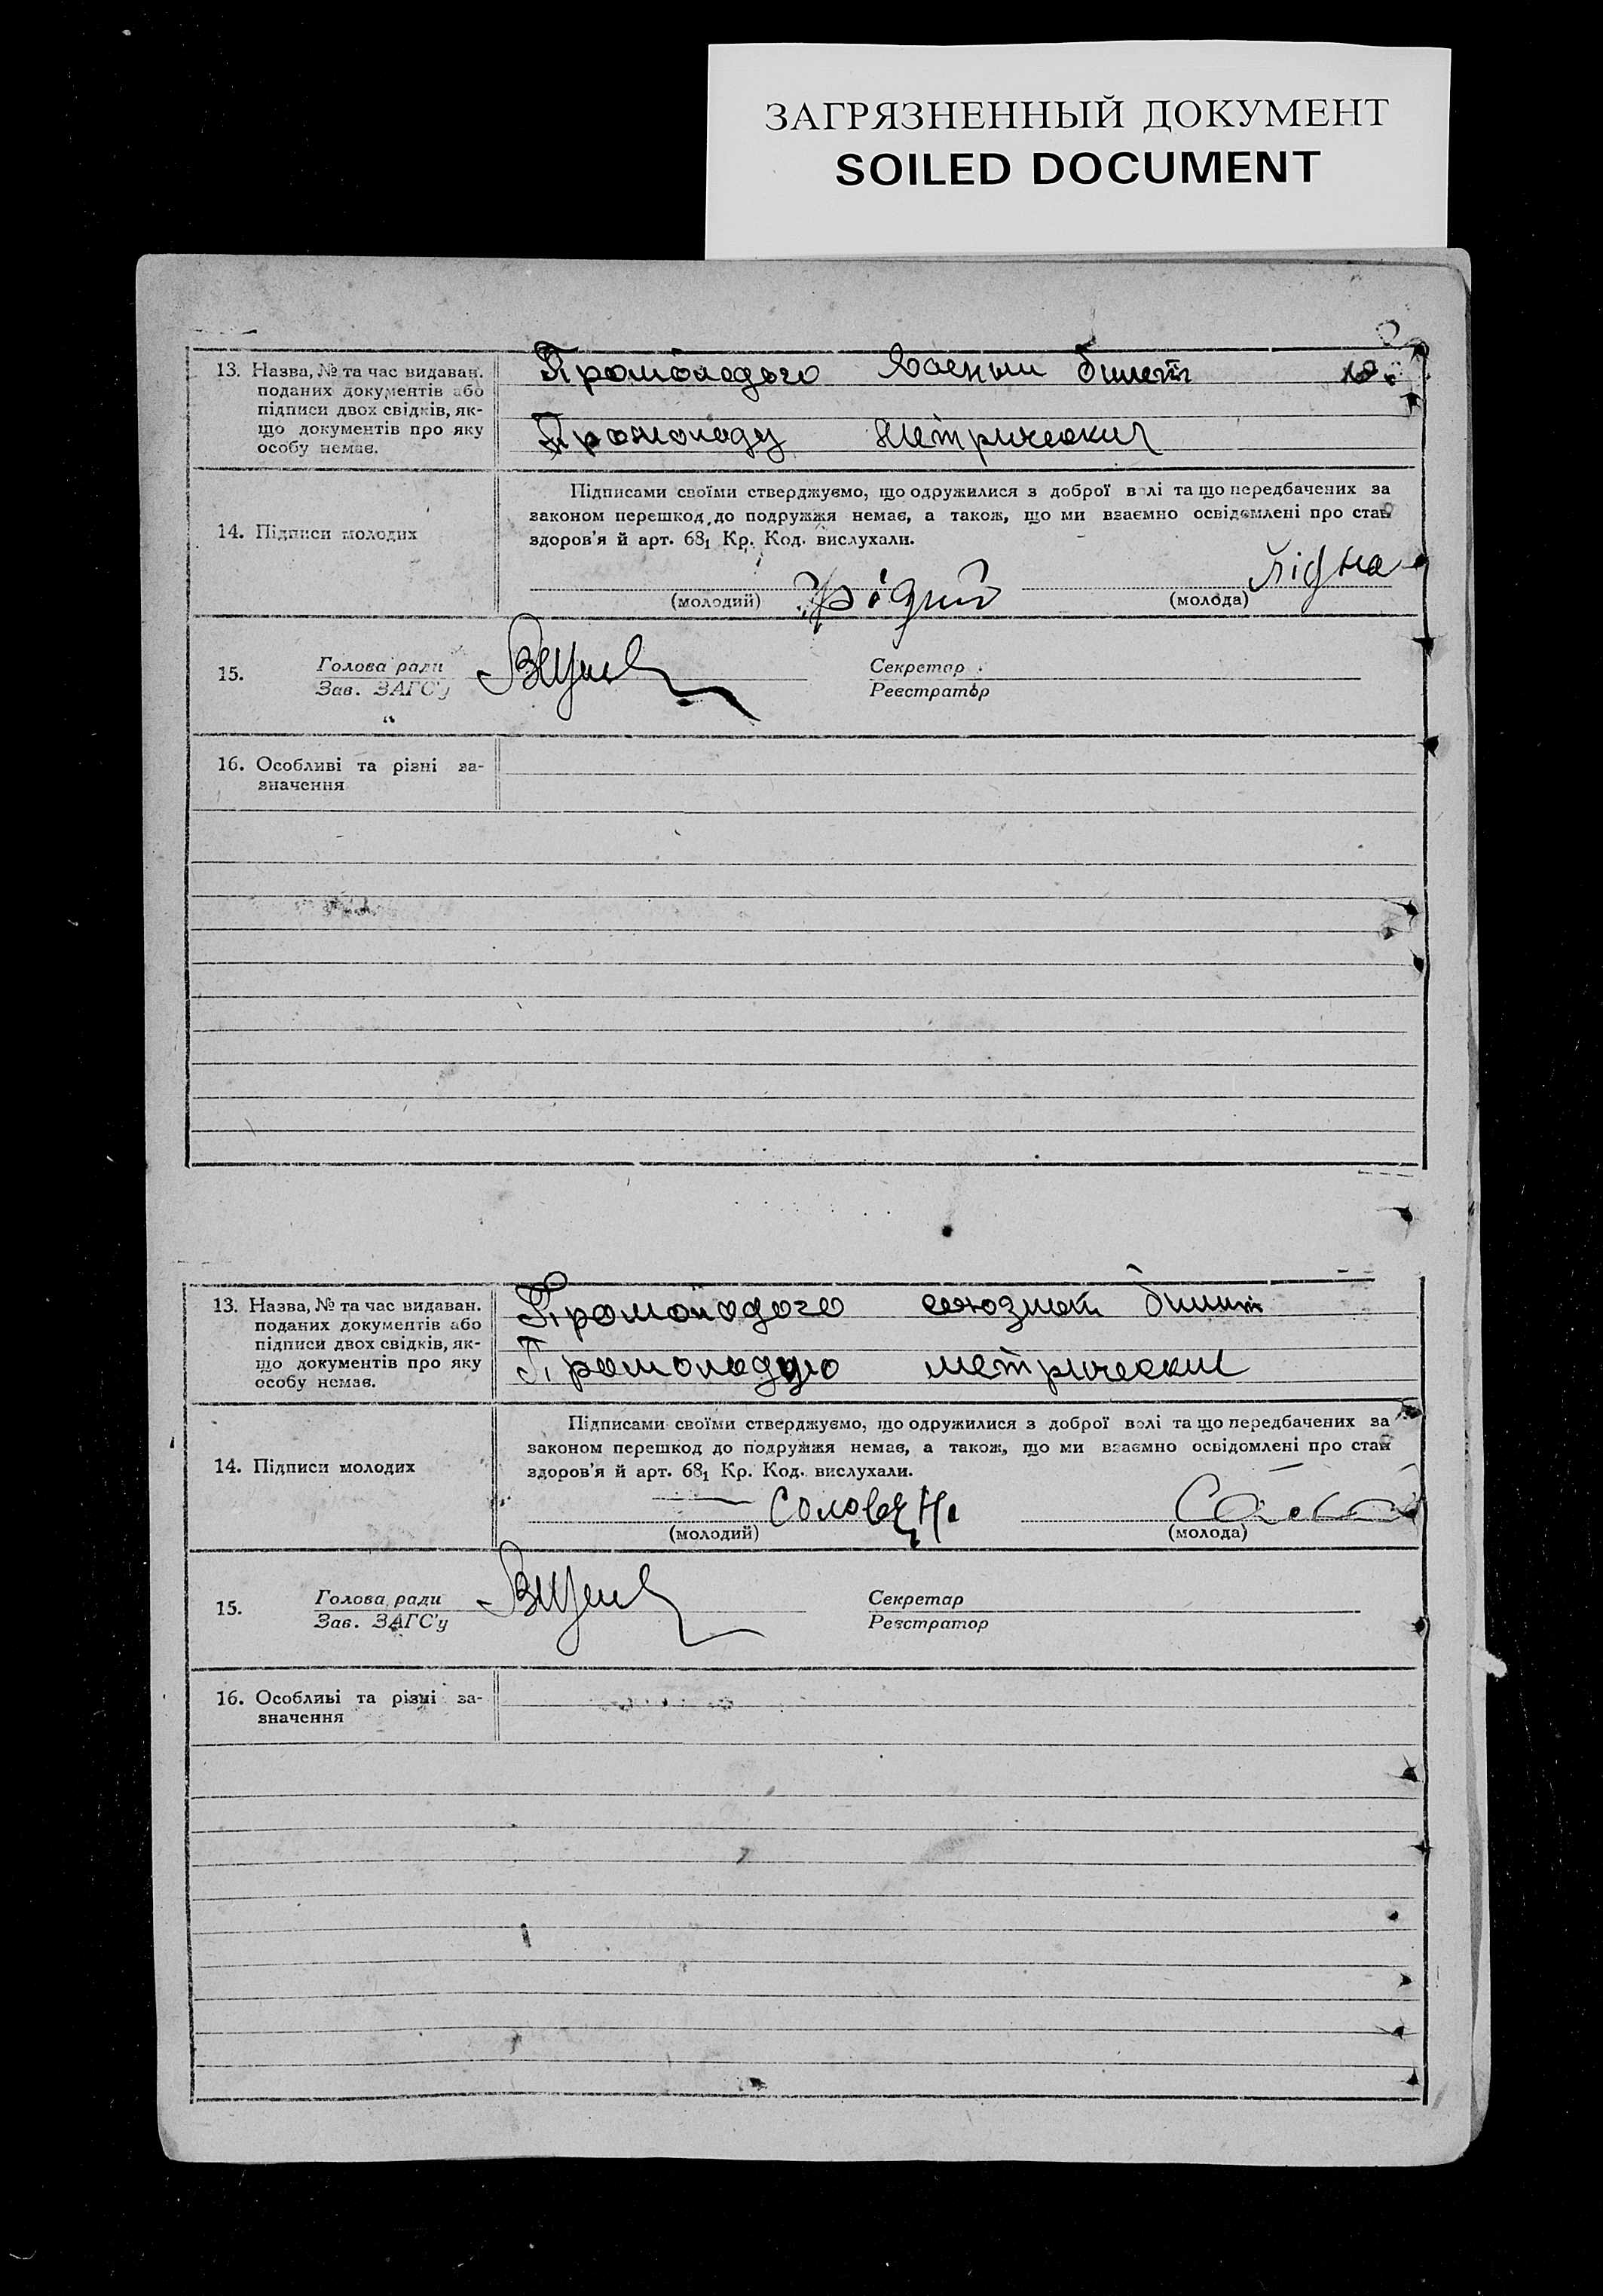 ЗАГРЯЗНЕННЫЙ ДОКУМЕНТ
SOILED DOCUMENT
13. Назва, № та час видаван. поданих документів або підписи двох свідків, якщо документів про яку особу немає.
Промолодого военный билет
Промолоду метрический
14. Підписи молодих
Підписами своїми стверджуємо, що одружилися з доброї волі та що передбачених за
законом перешкод до подружжя немає, а також, що ми взаємно освідомлені про стан
здоров'я й арт. 68₁ Кр. Код. вислухали.
(молодий) (молода)
15. Голова ради Секретар
Зав. ЗАГС'у Реєстратор
16. Особливі та різні за-
значення
13. Назва, № та час видаван.
поданих документів або
підписи двох свідків, як-
що документів про яку
особу немає.
Промолодого союзный билет
Промолодую метрический
14. Підписи молодих
Підписами своїми стверджуємо, що одружилися з доброї волі та що передбачених за
законом перешкод до подружжя немає, а також, що ми взаємно освідомлені про стан
здоров'я й арт. 68₁ Кр. Код. вислухали.
(молодий) (молода)
15. Голова ради Секретар
Зав. ЗАГС'у Реєстратор
16. Особливі та різні за-
значення